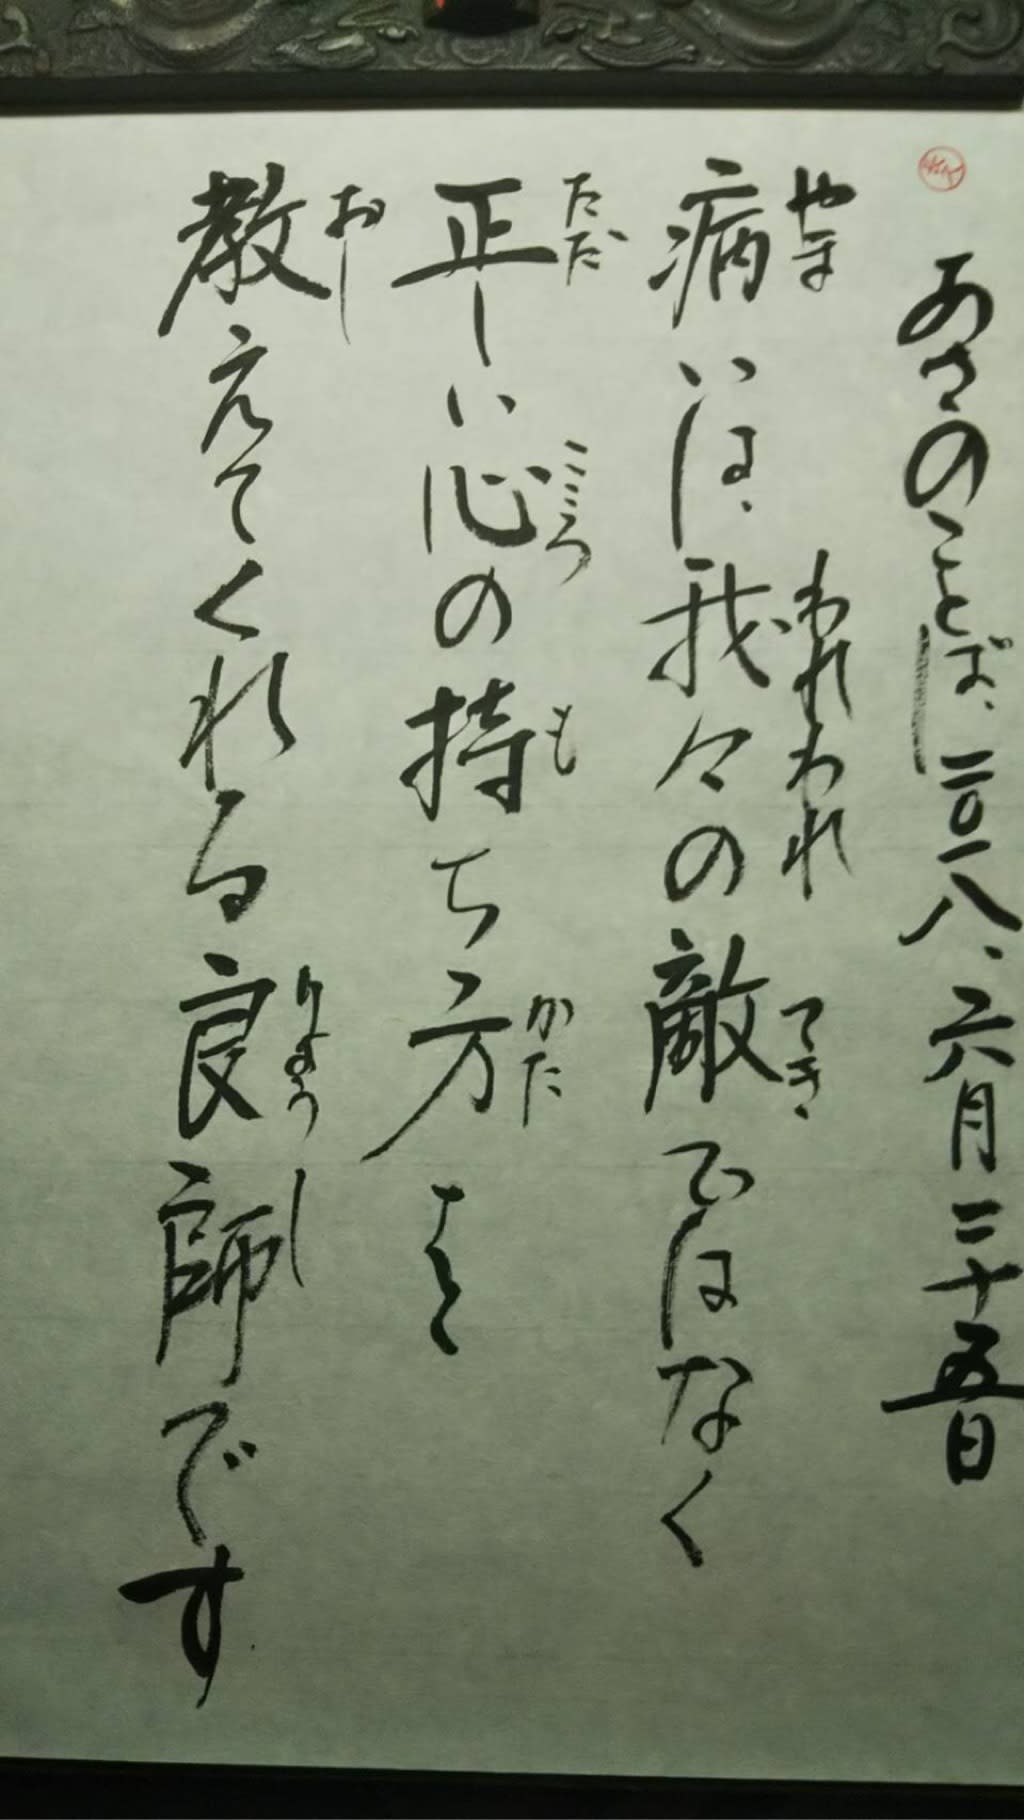 あさのことば、二〇一八、六月二十五日
やま われわれ てき
病いは、我々の敵ではなく
ただ こころ も かた
正しい心の持ち方を
おし りょうし
教えてくれる良師です